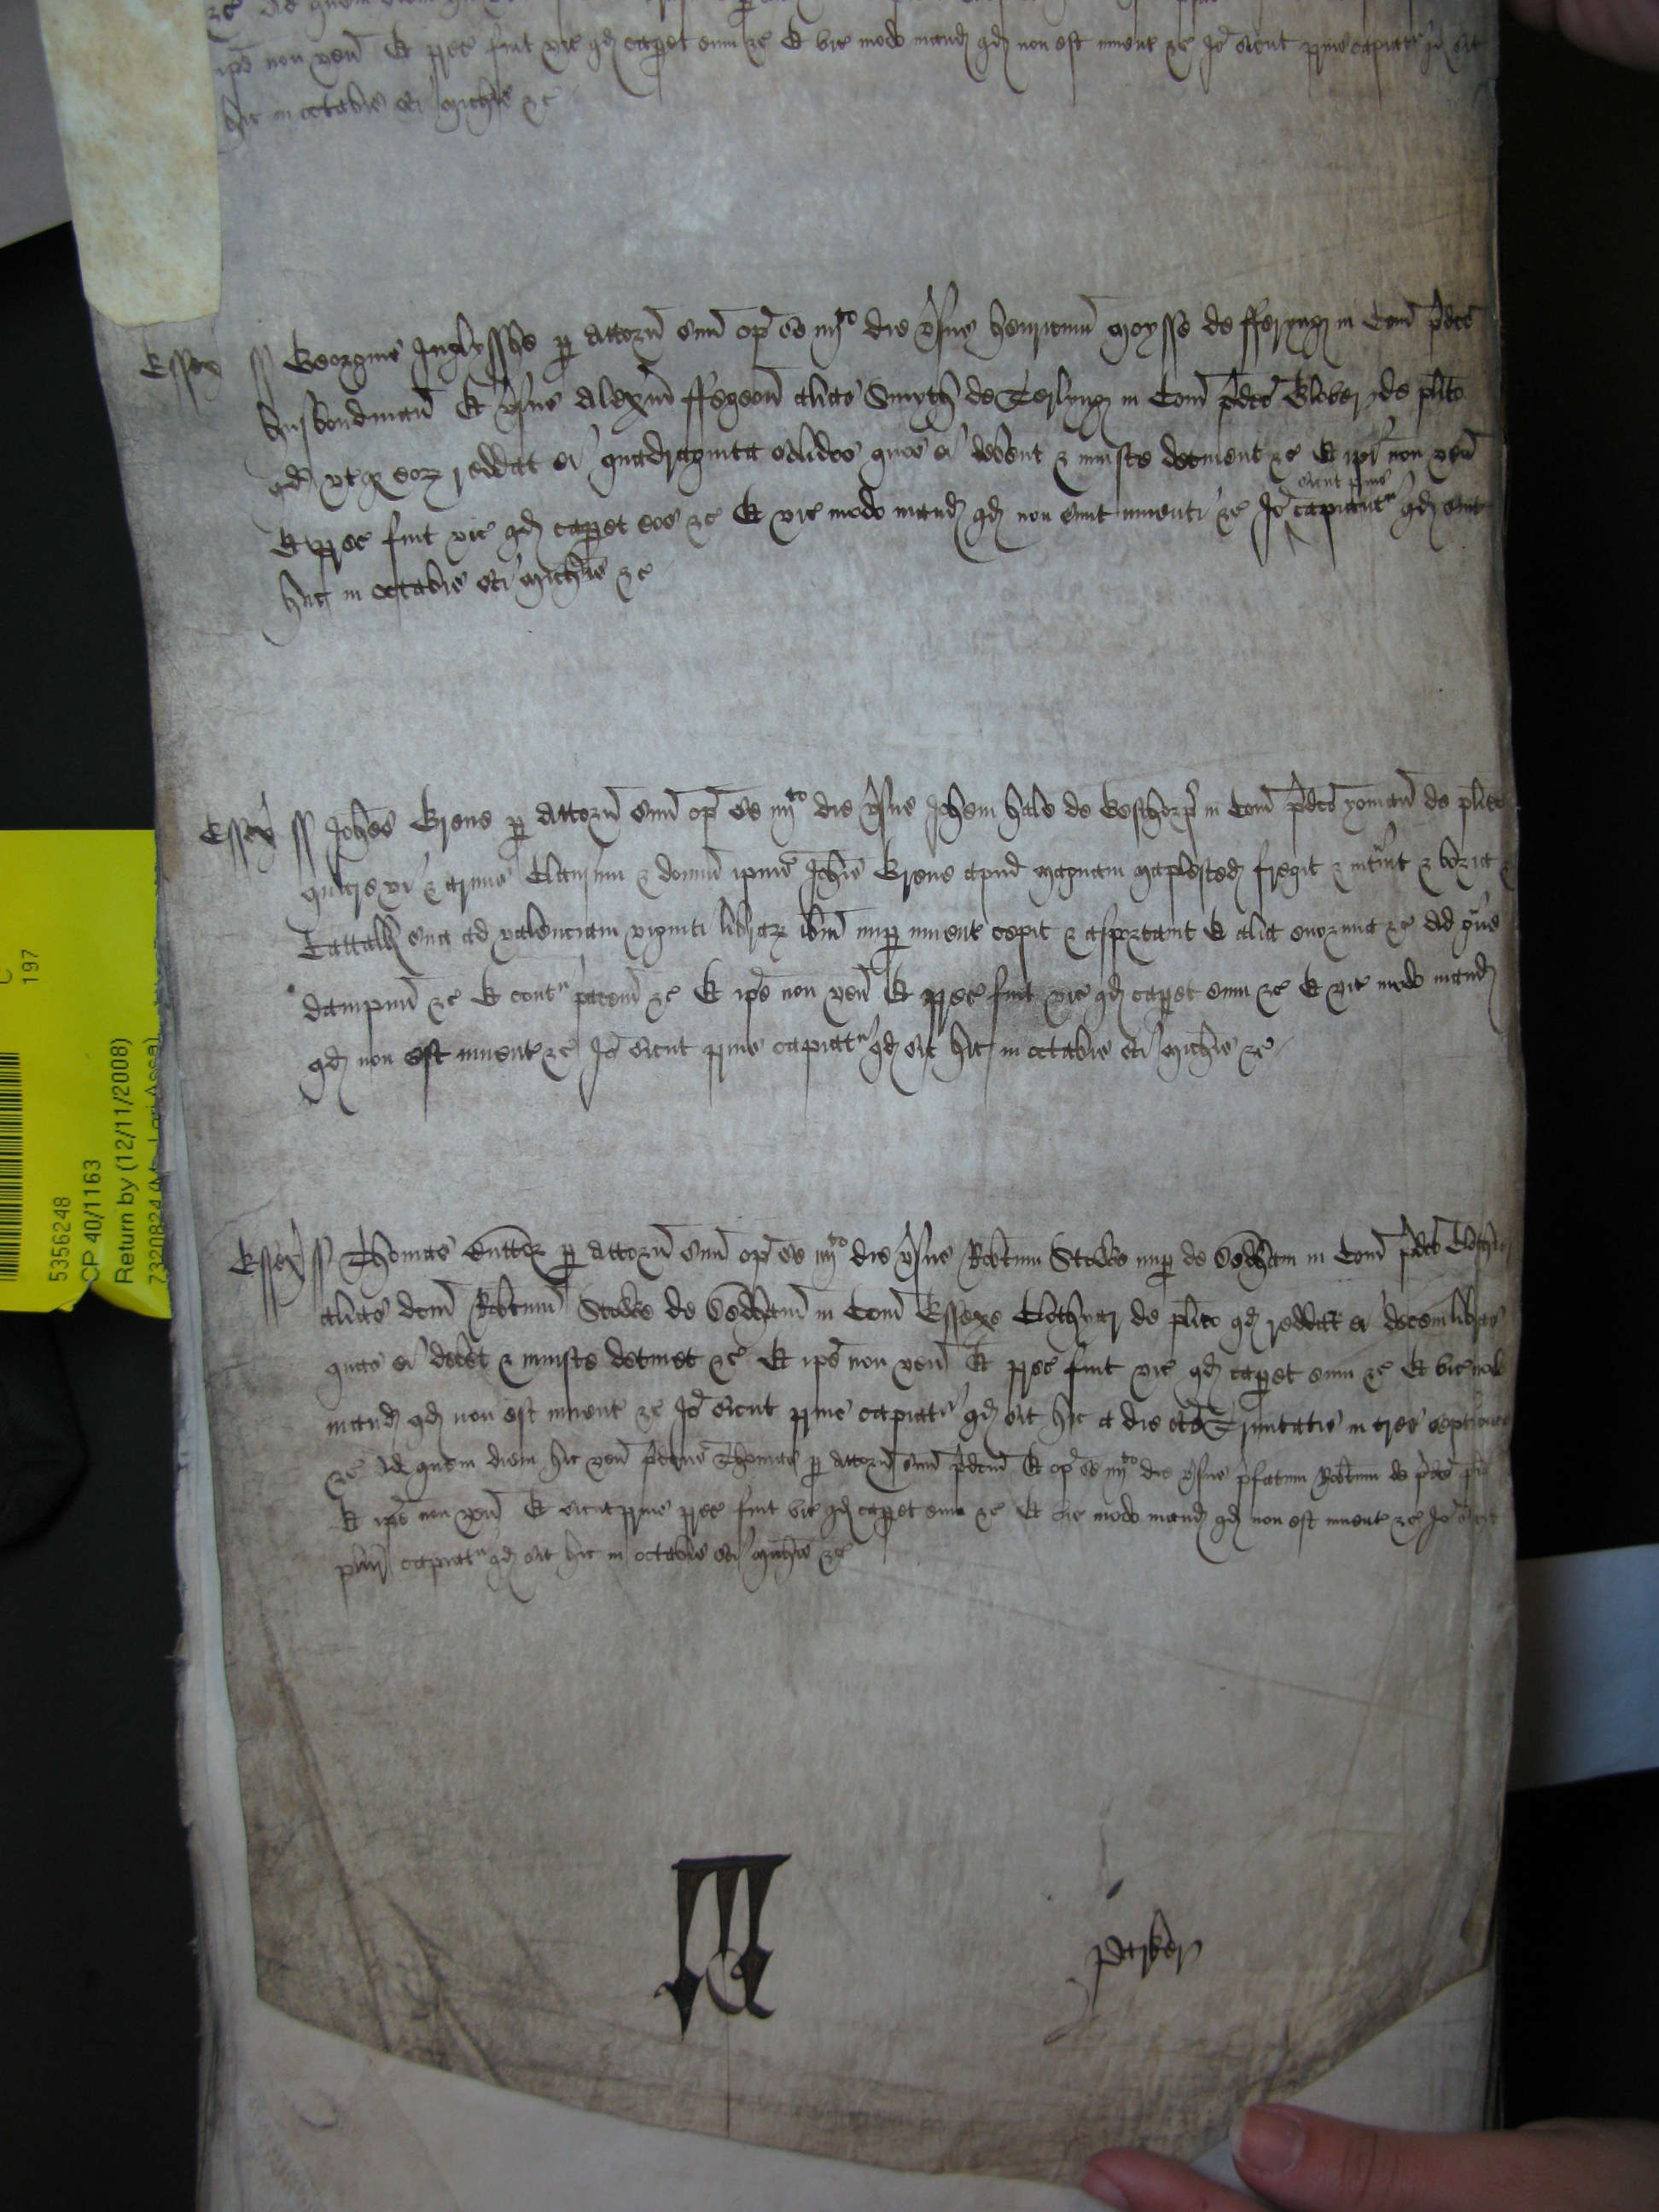 ipse non ven Et prec fuit vic qd caperet eum &c Et vic modo mand qd non est invent &c Io sicut prius capiatr qd sit
hic in octabis sci Michis &c
Essex ss Georgius Inglysshe p attorn suu op se iiijto die vsus Henricum Moysse de Fferyng in Com pdco
husbondman Et vsus Alexm Ffegeon alias Smyth de Terlyng in Com pdco Glover de plito
qd vtqz eoz reddat ei quadraginta solidos quos ei debent & iniuste detinent &c Et ipi non ven
sicut prius
Et prec fuit vic qd caperet eos &c Et vic modo mand qd non sunt inventi &c Io capiantr qd sint
hic in octabis sci Michis &c
Essex ss Johes Grene p attorn suu op se iiijto die vsus Johem Hale de in Com pdco yoman de plito
quare vi & armis clausum & domu ipius Johis Grene apud magnam Maplested fregit & intravit & bona &
Catalla sua ad valenciam viginti libraz ibm nup invent cepit & asportavit Et alia enormia &c Ad grave
dampnu &c Et contra pacem &c Et ipse non ven Et prec fuit vic qd caperet eum &c Et vic modo mand
qd non est invent &c Io sicut prius capiatr qd sit hic in octabis sci Michis &c
Essex ss Thomas Cutter p attorn suu op se iiijto die vsus Robtum Stokes nup de Dedham in Com pdco Clothier
alias dcm Robtum Stokes de Dedham in Com Essexe Clothyar de plito qd reddat ei decem libras
quas ei debet & iniuste detinet &c Et ipse non ven Et prec fuit vic qd caperet eum &c Et vic modo
mand qd non est invent &c Io sicut prius capiatr qd sit hic a die sce Trinitatis in tres septimanas
&c Ad quem diem hic ven pdcus Thomas p attorn suu pdcm Et op se iiijto die vsus pfatum Robtum de pdco plito
Et ipse non ven Et sicut prius prec fuit vic qd caperet eum &c Et vic modo mand qd non est invent &c Io sicut
plur capiatr qd sit hic in octabis sci Michis &c
Parker
197
5356248
CP 40/1163
Return by (12/11/2008)
7320824